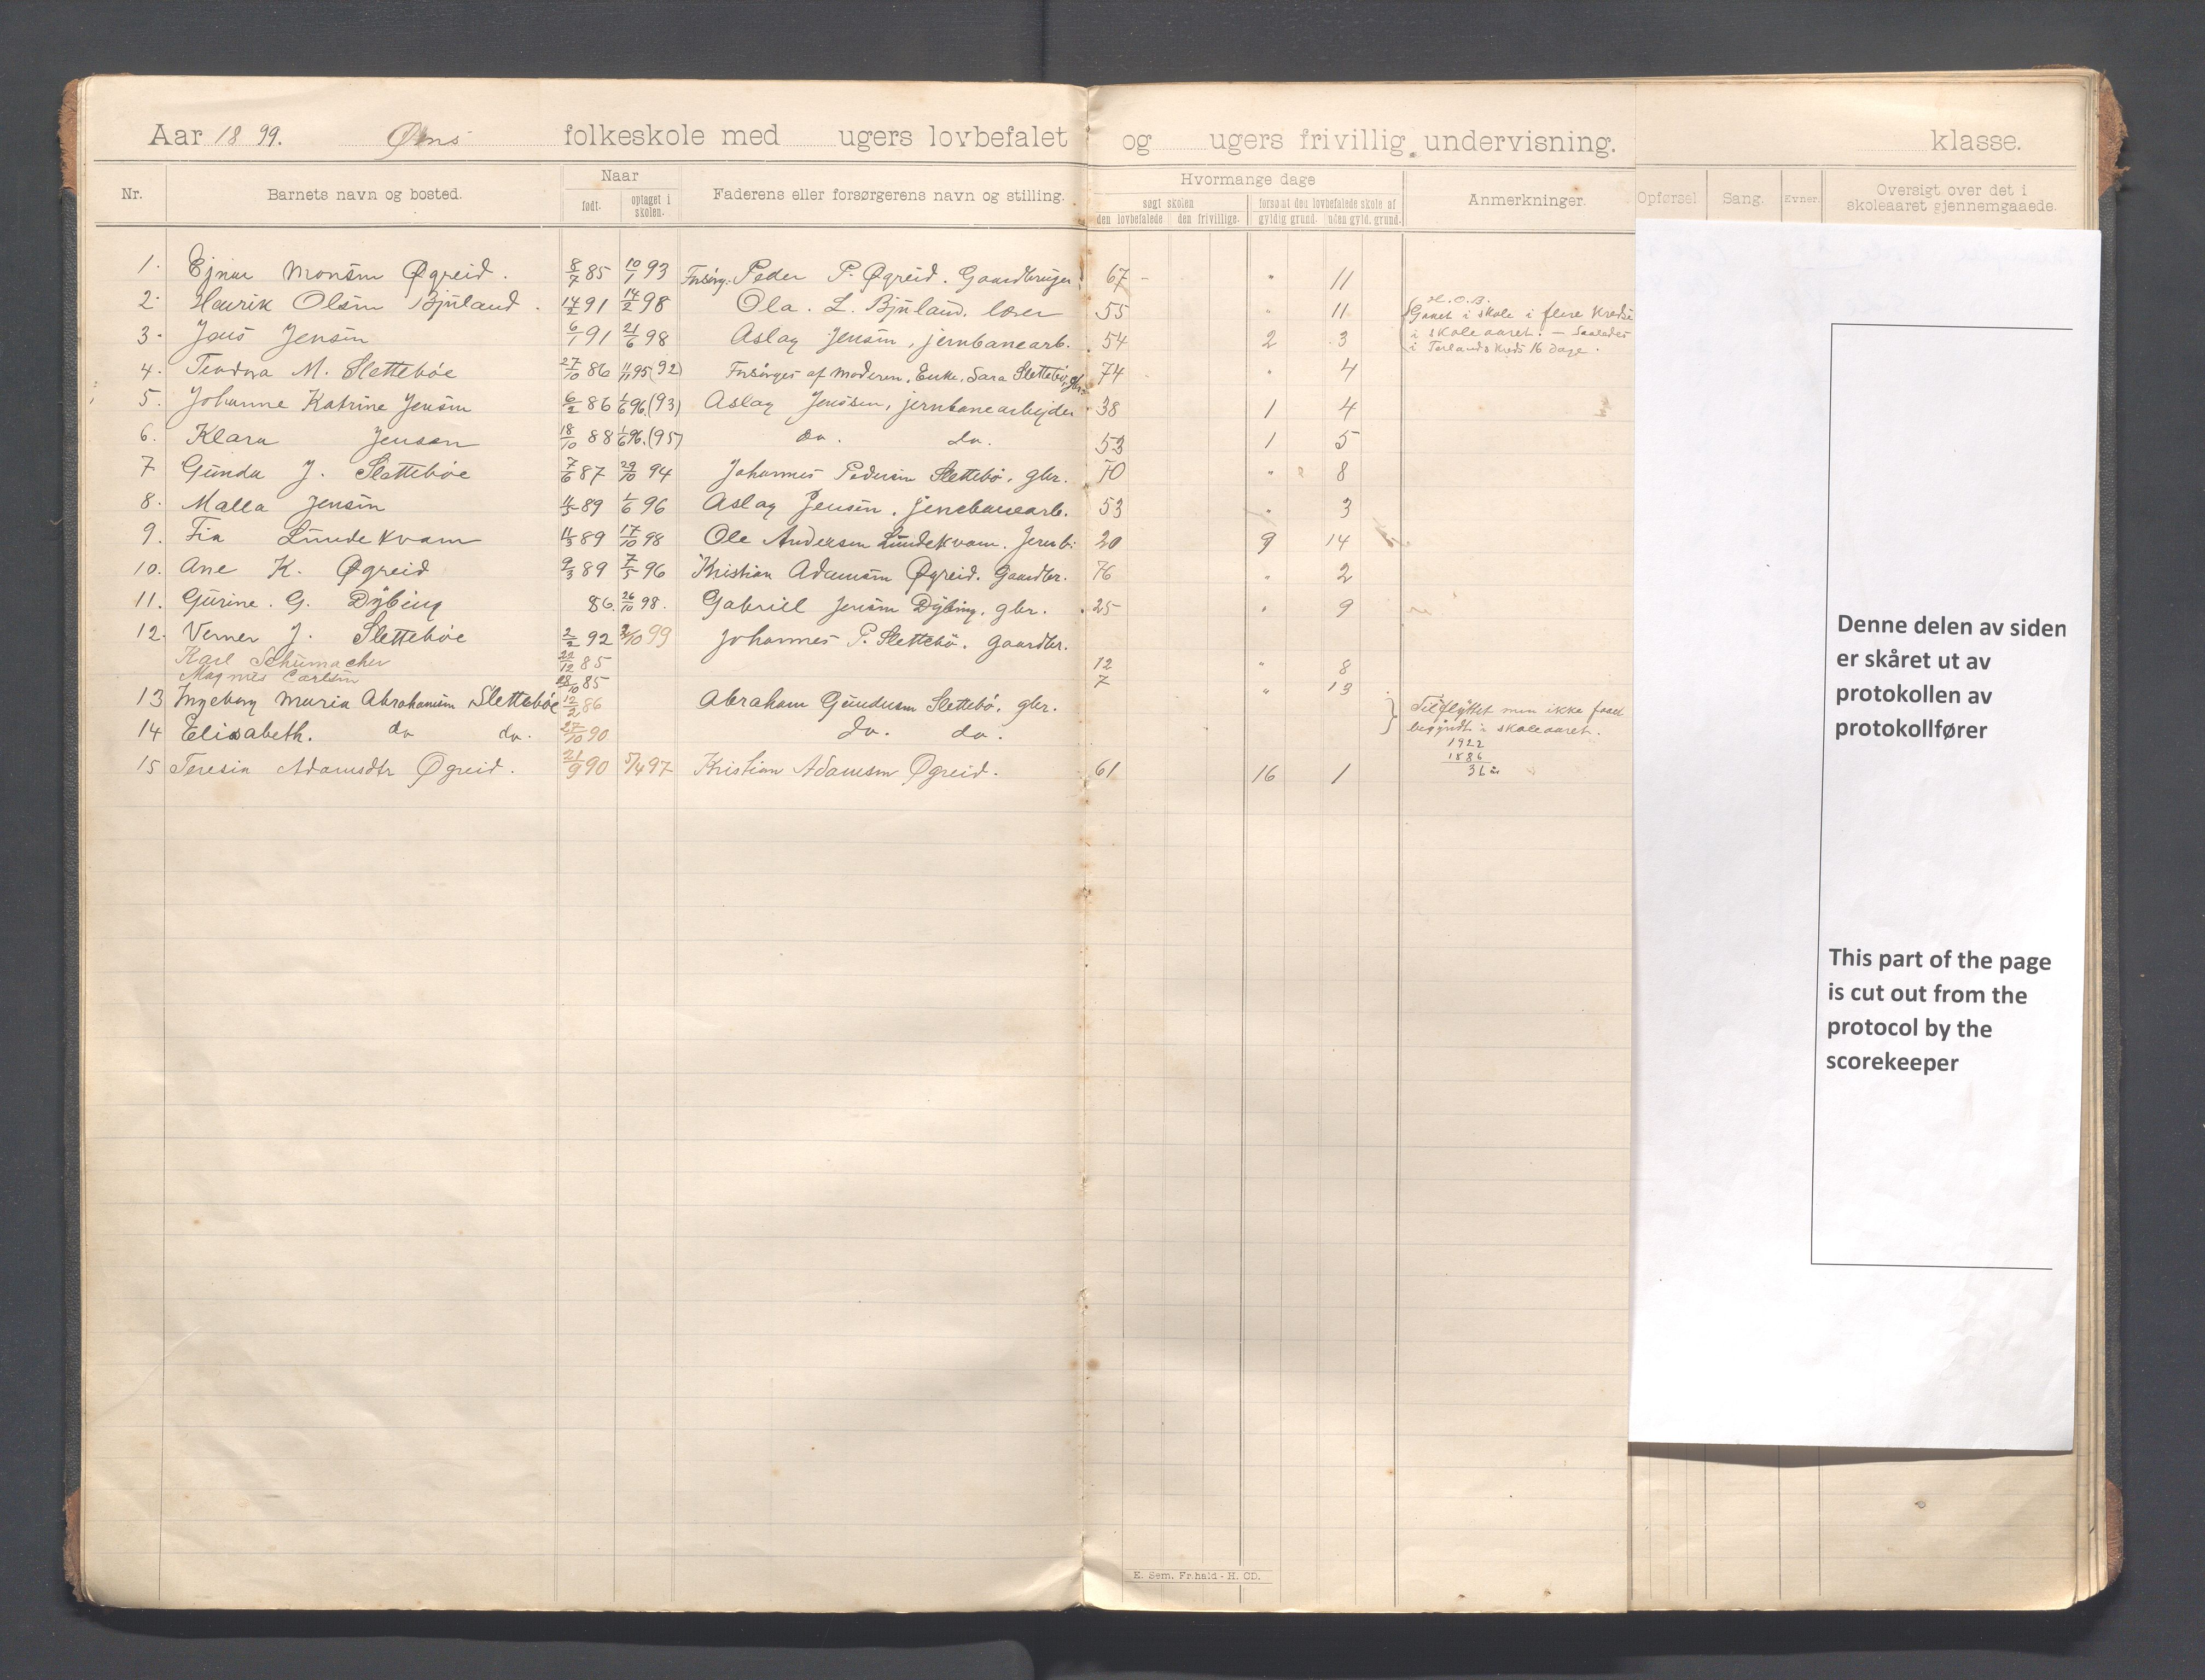 Aar 1899. folkeskole med ugers lovbefalet og ugers frivillig undervisning. klasse.
Nr. Barnets navn og bosted. Naar født. optaget i skolen. Faderens eller forsørgerens navn og stilling. Hvormange dage søgt skolen den lovbefalede den frivillige. forsømt den lovbefalede skole af gyldig grund. uden gyld. grund. Anmerkninger. Opførsel Sang. Evner. Oversigt over det i skoleaaret gjennemgaaede.
1. Ejnar Monsen Øgreid. 8/7 85 10/1 93 Forsørg. Peder P. Øgreid. Gaardbruger 67 " 11
2. Henrik Olsen Bjuland. 14/2 91 14/2 98 Ola. L. Bjuland. lærer 55 " 11
3. Jens Jensen 6/1 91 21/6 98 Aslag Jensen, jernbanearb. 54 2 3
H. O. B. Gaaet i skole i flere Kredse i skoleaaret. – Saaledes i Terlands Kreds 16 dage.
4. Teodora M. Slettebøe 27/10 86 11/11 95 (92) Forsørges af moderen, Enke, Sara Slettebø, gbr. 74 " 4
5. Johanne Katrine Jensen 6/2 86 1/6 96. (93) Aslag Jenssen, jernbanearbejder 38 1 4
6. Klara Jensen 18/10 88 1/6 96. (95) do. do. 53 1 5
7 Gunda J. Slettebøe 7/6 87 29/10 94 Johannes Pedersen Slettebø, gbr. 70 " 8
8. Malla Jensen 4/5 89 1/6 96 Aslag Jensen, jernbanearb. 53 " 3
9. Fia Lundekvam 4/3 89 17/10 98 Ole Andersen Lundekvam. Jernb. 20 9 14
10. Ane K. Øgreid 9/3 89 7/5 96 Kristian Adamsen Øgreid. Gaardbr. 76 " 2
11. Gurine. G. Dybing 86. 26/10 98. Gabriel Jensen Dybing, gbr. 25 " 9
12. Verner J. Slettebøe 2/2 92 2/10 99 Johannes P. Slettebø. Gaardbr.
Karl Schumacher 22/12 85 12 " 8
Magnus Carlsen 28/10 85 7 " 13
13 Ingeborg Maria Abrahamsen Slettebøe 12/2 86 Abraham Gundersen Slettebø, gbr.
14 Elisabeth. do do. 27/10 90 do. do.
Tilflyttet men ikke faaet begyndt i skoleaaret.
1922
1886
36 år
15 Teresia Adamsdtr Øgreid. 21/9 90 5/4 97 Kristian Adamsen Øgreid. 61 16 1
Denne delen av siden
er skåret ut av
protokollen av
protokollfører
This part of the page
is cut out from the
protocol by the
scorekeeper
E. Sem. Fr.hald - H. CD.